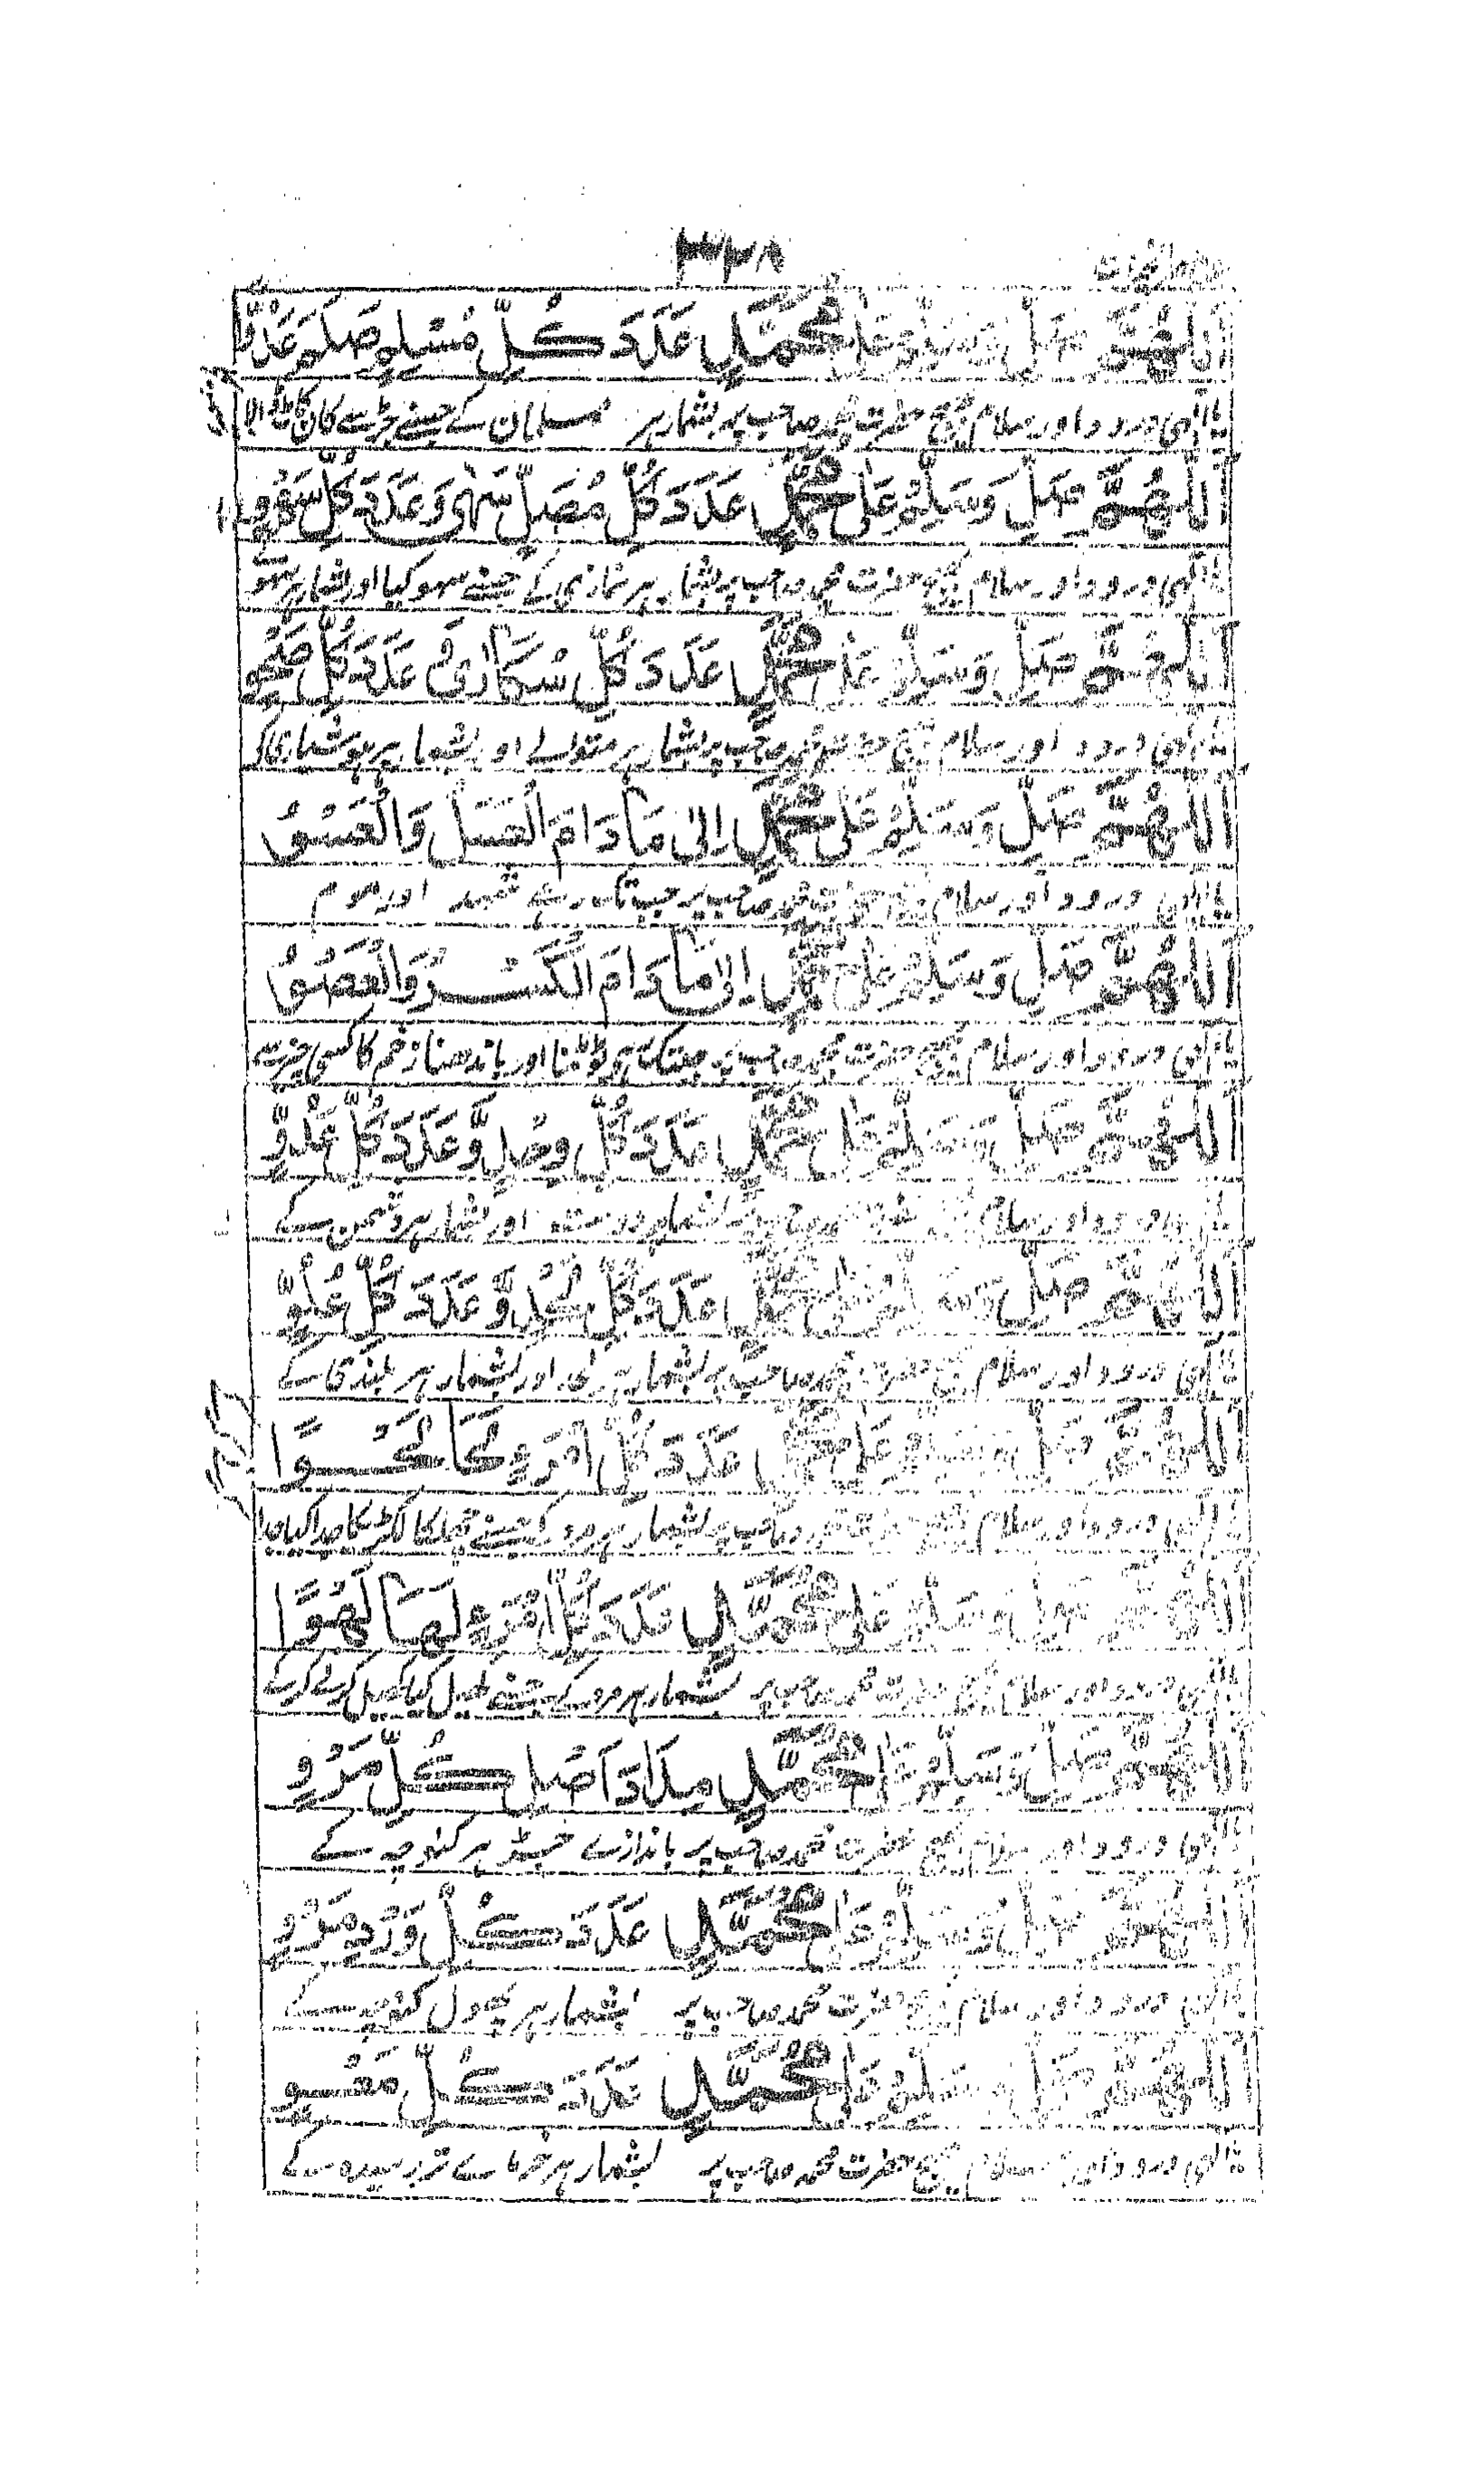 ۳۳۸
اَللّٰهُمَّ صَلِّ وَسَلِّمْ عَلٰی مُحَمَّدٍ عَدَدَ كُلِّ مُسْلِمٍ صَلَمَ عَدُوًّا
یا الہی درود اور سلام بھیج حضرت محمد صاحب پر بشمار ہر مسلمان کے جسنے جڑسے کان
اَللّٰهُمَّ صَلِّ وَسَلِّمْ عَلٰی مُحَمَّدٍ عَدَدَ كُلِّ مُصَلٍّ سَهٰی وَعَدَدَ كُلِّ سَهْوٍ
یا الہی درود اور سلام بھیج حضرت محمد صاحب پر بشمار ہر نمازی کے جسنے سہو کیا اور بشمار ہر سہو
اَللّٰهُمَّ صَلِّ وَسَلِّمْ عَلٰی مُحَمَّدٍ عَدَدَ كُلِّ سُكَارٰی وَّ عَدَدَ كُلِّ صَحْوٍ
یا الہی درود اور سلام بھیج حضرت محمد صاحب پر بشمار ہر متوالے اور بشمار ہر ہوشیاری کے
اَللّٰهُمَّ صَلِّ وَسَلِّمْ عَلٰی مُحَمَّدٍ اِلٰی مَا دَامَ الْعَسَلُ وَالْعَسْوُ
یا الہی درود اور سلام بھیج حضرت محمد صاحب پر جب تک رہے شہد اور موم
اَللّٰهُمَّ صَلِّ وَسَلِّمْ عَلٰی مُحَمَّدٍ اِلٰی مَا دَامَ الْكَسْرُ وَالْعَصْوُ
یا الہی درود اور سلام بھیج حضرت محمد صاحب پر جبتک ہو ٹوٹنا اور باندھنا زخم کا کسی چیز سے
اَللّٰهُمَّ صَلِّ وَسَلِّمْ عَلٰی مُحَمَّدٍ عَدَدَ كُلِّ وَّعَدَدَ كُلِّ عَدُوٍّ
یا الہی درود اور سلام بھیج حضرت محمد صاحب پر بشمار ہر دوست اور بشمار ہر دشمن کے
اَللّٰهُمَّ صَلِّ وَسَلِّمْ عَلٰی مُحَمَّدٍ عَدَدَ كُلِّ وَّعَدَدَ كُلِّ عُلُوٍّ
یا الہی درود اور سلام بھیج حضرت محمد صاحب پر بشمار ہر اور بشمار ہر بلندی کے
اَللّٰهُمَّ صَلِّ وَسَلِّمْ عَلٰی مُحَمَّدٍ عَدَدَ كُلِّ امْرَءٍ لَحَا لَحْوًا
یا الہی درود اور سلام بھیج حضرت محمد صاحب پر بشمار ہر مرد کے جسنے چھلکا لکڑی کا جدا کیا
اَللّٰهُمَّ صَلِّ وَسَلِّمْ عَلٰی مُحَمَّدٍ عَدَدَ كُلِّ امْرَءٍ لَهَا لَهْوًا
یا الہی درود اور سلام بھیج حضرت محمد صاحب پر بشمار ہر مرد کے جسنے کھیل کیا کھیل کرنے کر کے
اَللّٰهُمَّ صَلِّ وَسَلِّمْ عَلٰی مُحَمَّدٍ مِدَادَ اَصْلِ كُلِّ مَرْوٍ
یا الہی درود اور سلام بھیج حضرت محمد صاحب پر باندازے جڑ ہر کنوچہ کے
اَللّٰهُمَّ صَلِّ وَسَلِّمْ عَلٰی مُحَمَّدٍ عَدَدَ كُلِّ وَرْدِ مَرْوٍ
یا الہی درود اور سلام بھیج حضرت محمد صاحب پر بشمار ہر پھول کنوچہ کے
اَللّٰهُمَّ صَلِّ وَسَلِّمْ عَلٰی مُحَمَّدٍ عَدَدَ كُلِّ مَعْوٍ
یا الہی درود اور سلام بھیج حضرت محمد صاحب پر بشمار ہر خرمائے تر رسیدہ کے